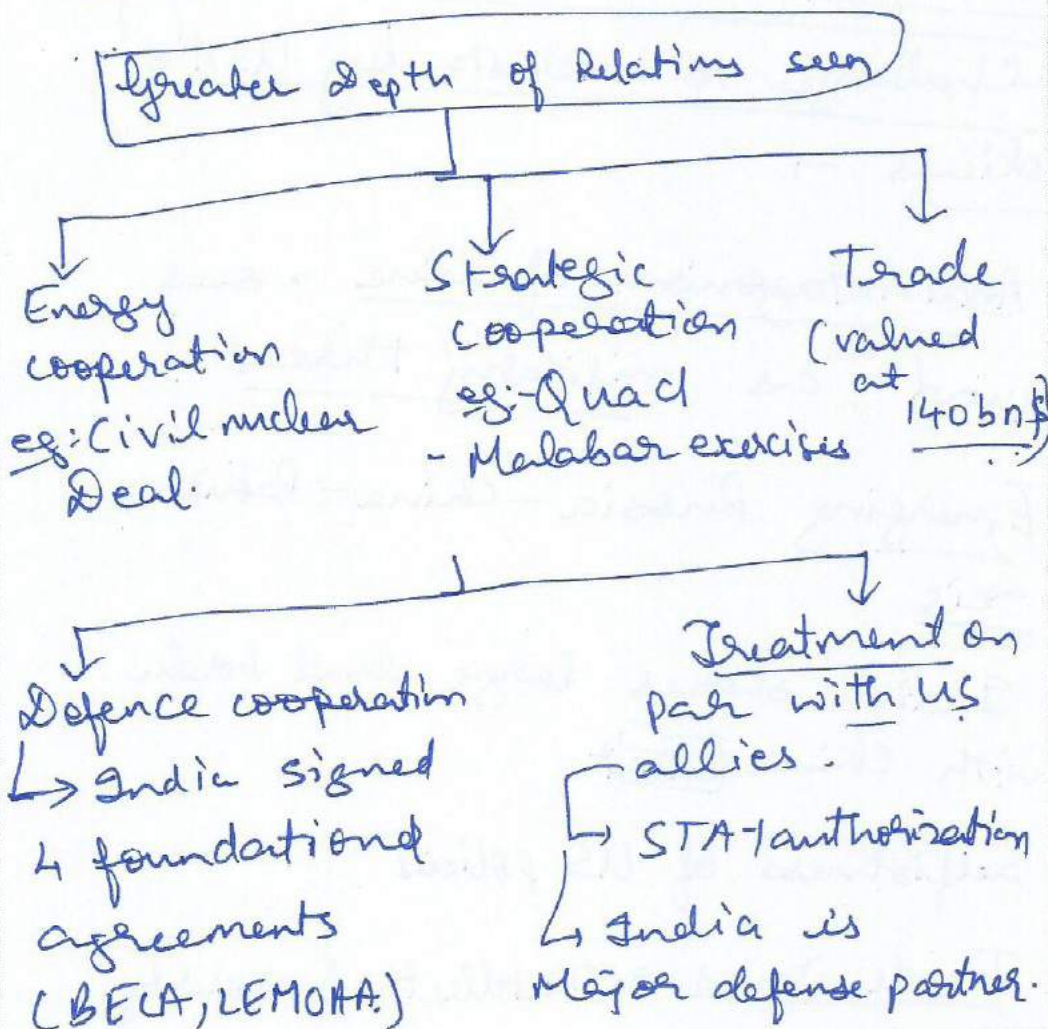 Greater Depth of Relations seen
Energy
cooperation
eg: Civil nuclear
Deal.
Strategic
cooperation
eg:- Quad
- Malabar exercises
Trade
(valued
at
140 bn $)
Defence cooperation
↳ India signed
4 foundational
agreements
(BECA, LEMOHA.)
Treatment on
par with US
allies.
↳ STA-1 authorization
↳ India is
Major defense partner.